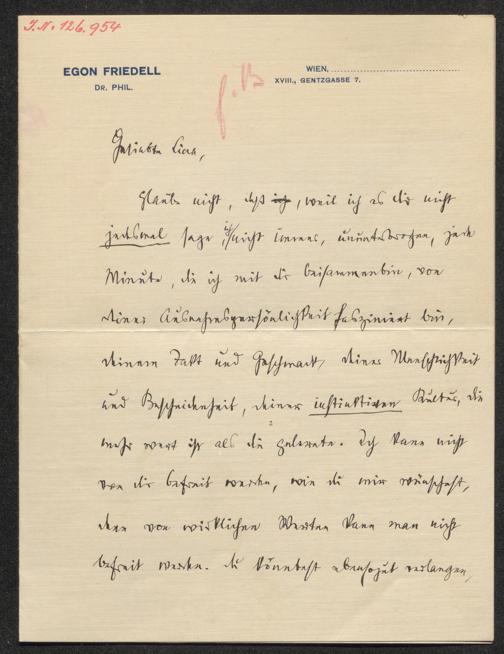 J.N. 126.954
EGON FRIEDELL
DR. PHIL.
WIEN,
XVIII., GENTZGASSE 7.
Geliebte Lina,
Glaube nicht, daß ich, weil ich es dir nicht
jedesmal sage, ich nicht immer, ununterbrochen, jede
Minute, die ich mit dir beisammenbin, von
deiner Ausnahmspersönlichkeit fasziniert bin,
deinem Takt und Geschmack, deiner Menschlichkeit
und Bescheidenheit, deiner instinktiven Kultur, die
mehr wert ist als die gelernte. Ich kann nicht
von dir befreit werden, wie du mir wünschest,
denn von wirklichen Werten kann man nicht
befreit werden. Du könntest ebensogut verlangen,